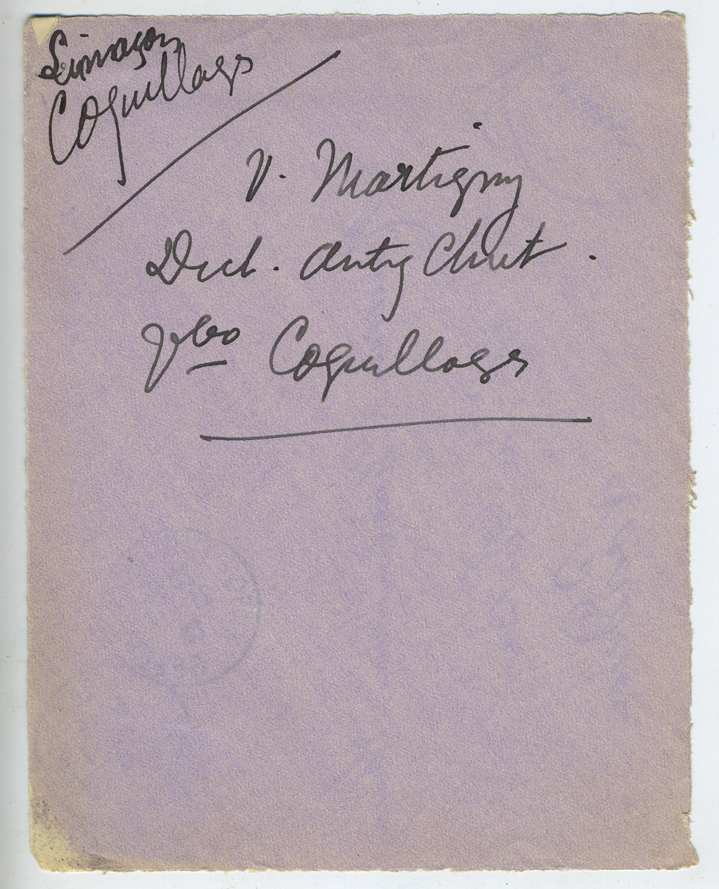 Limaçon
Coquillages
V. Martigny
Dict. Antiq Chret.
Vbo Coquillages